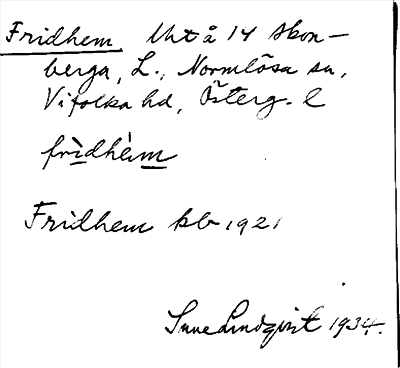 Fridhem Uht å 14 Skon-
berga, L., Normlösa sn,
Vifolka hd, Österg. l
frìdhèm
Fridhem kb 1921
Sune Lindqvist 1934.